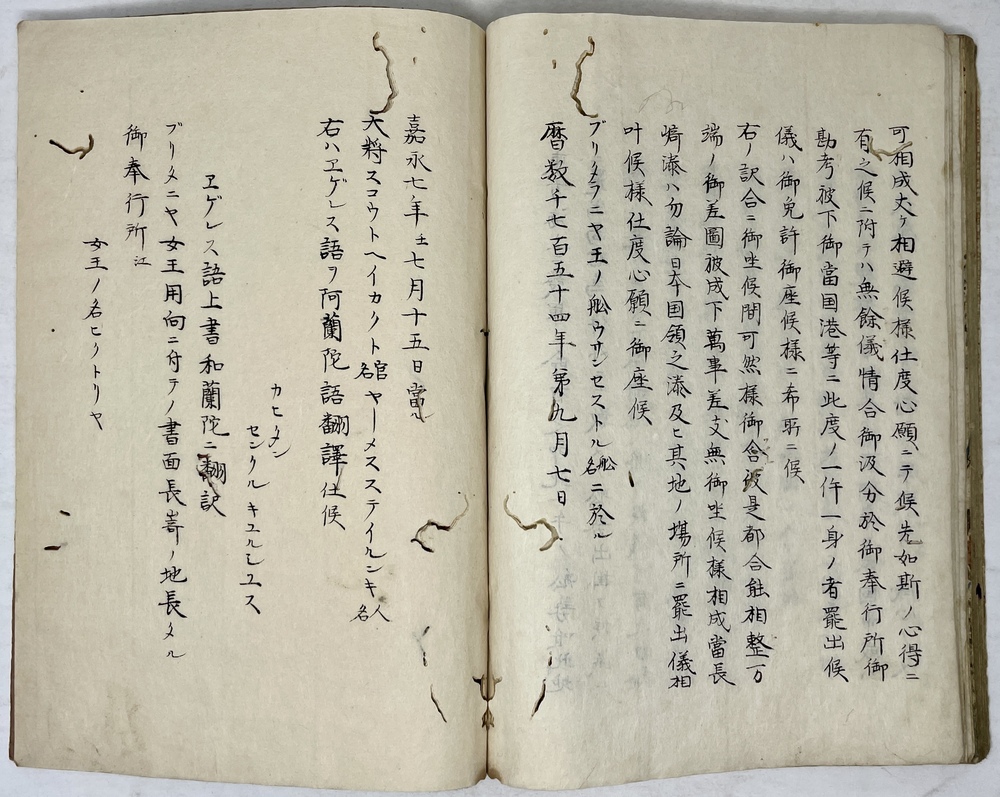 可相成丈ケ相避候様仕度心願ニテ候先如斯ノ心得ニ
有之候ニ附テハ無餘儀情合御汲分於御奉行所御
勘考被下御當国港等ニ此度ノ一件一身ノ者罷出候
儀ハ御免許御座候様ニ希所ニ候
右ノ訳合ニ御坐候間可然様御含彼是都合能相整万
端ノ御差圖被成下萬事差支無御坐候様相成當長
崎湊ハ勿論日本国領之湊及ヒ其地ノ場所ニ罷出儀相
叶候様仕度心願ニ御座候
ブリタラニヤ王ノ舩ウサンセストル舩名ニ於ル
暦数千七百五十四年第九月七日
嘉永七年壬七月十五日當ル
大将スコウトヘイカクト官名ヤーメスステイルンキ人名
右ハヱゲレス語ヲ阿蘭陀語翻譯仕候
カヒタン
センクルキユルシユス
ヱゲレス語上書和蘭陀ニ翻訳
ブリタニヤ女王用向ニ付テノ書面長嵜ノ地長タル
御奉行所江
女王ノ名ヒクトリヤ